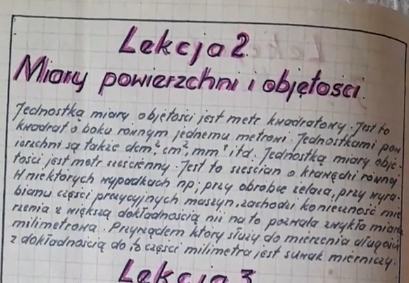 Lekcja 2
Miary powierzchni i objętości.
Jednostką miary objętości jest metr kwadratowy. Jest to
kwadrat o boku równym jednemu metrowi. Jednostkami pow
ierzchni są także dcm² cm² mm² itd. Jednostką miary obję-
tości jest metr sześcienny. Jest to sześcian o krawędzi równej
W niektórych wypadkach np; przy obróbce żelaza, przy wyra-
bianiu części precyzyjnych maszyn, zachodzi konieczność mie
rzenia z większą dokładnością niż na to pozwala zwykła miara
milimetrowa. Przyrządem który służy do mierzenia długości
z dokładnością do części milimetra jest suwak mierniczy.
Lekcja 3